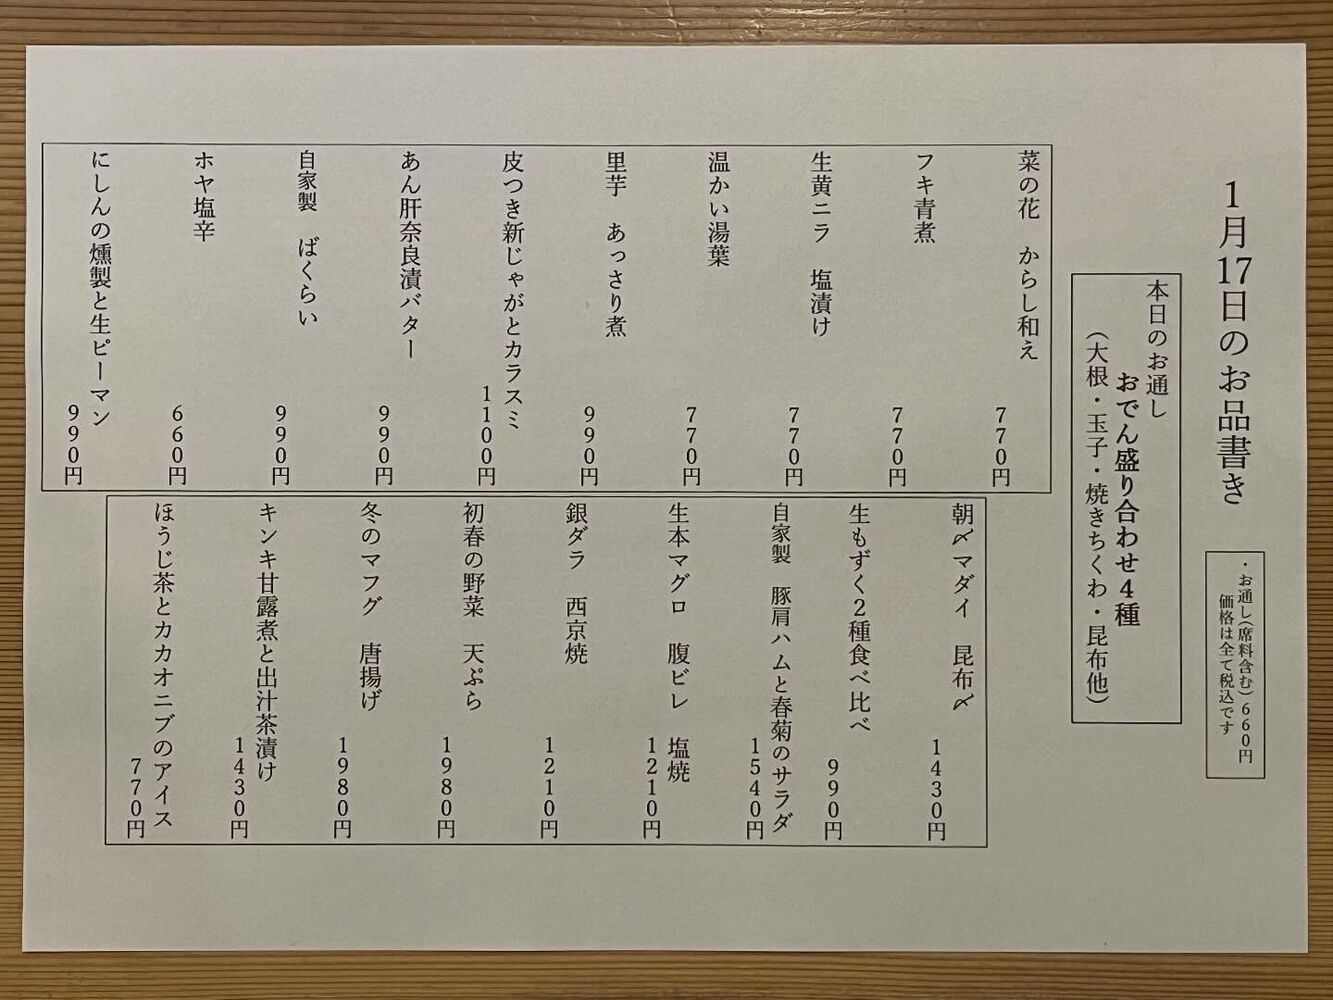 1月17日のお品書き
・お通し(席料含む)660円
価格は全て税込です
本日のお通し
おでん盛り合わせ4種
(大根・玉子・焼きちくわ・昆布他)
菜の花　からし和え
770円
フキ青煮
770円
生黄ニラ　塩漬け
770円
温かい湯葉
770円
里芋　あっさり煮
990円
皮つき新じゃがとカラスミ
1100円
あん肝奈良漬バター
990円
自家製　ばくらい
990円
ホヤ塩辛
660円
にしんの燻製と生ピーマン
990円
朝〆マダイ　昆布〆
1430円
生もずく2種食べ比べ
990円
自家製　豚肩ハムと春菊のサラダ
1540円
生本マグロ　腹ビレ　塩焼
1210円
銀ダラ　西京焼
1210円
初春の野菜　天ぷら
1980円
冬のマフグ　唐揚げ
1980円
キンキ甘露煮と出汁茶漬け
1430円
ほうじ茶とカカオニブのアイス
770円